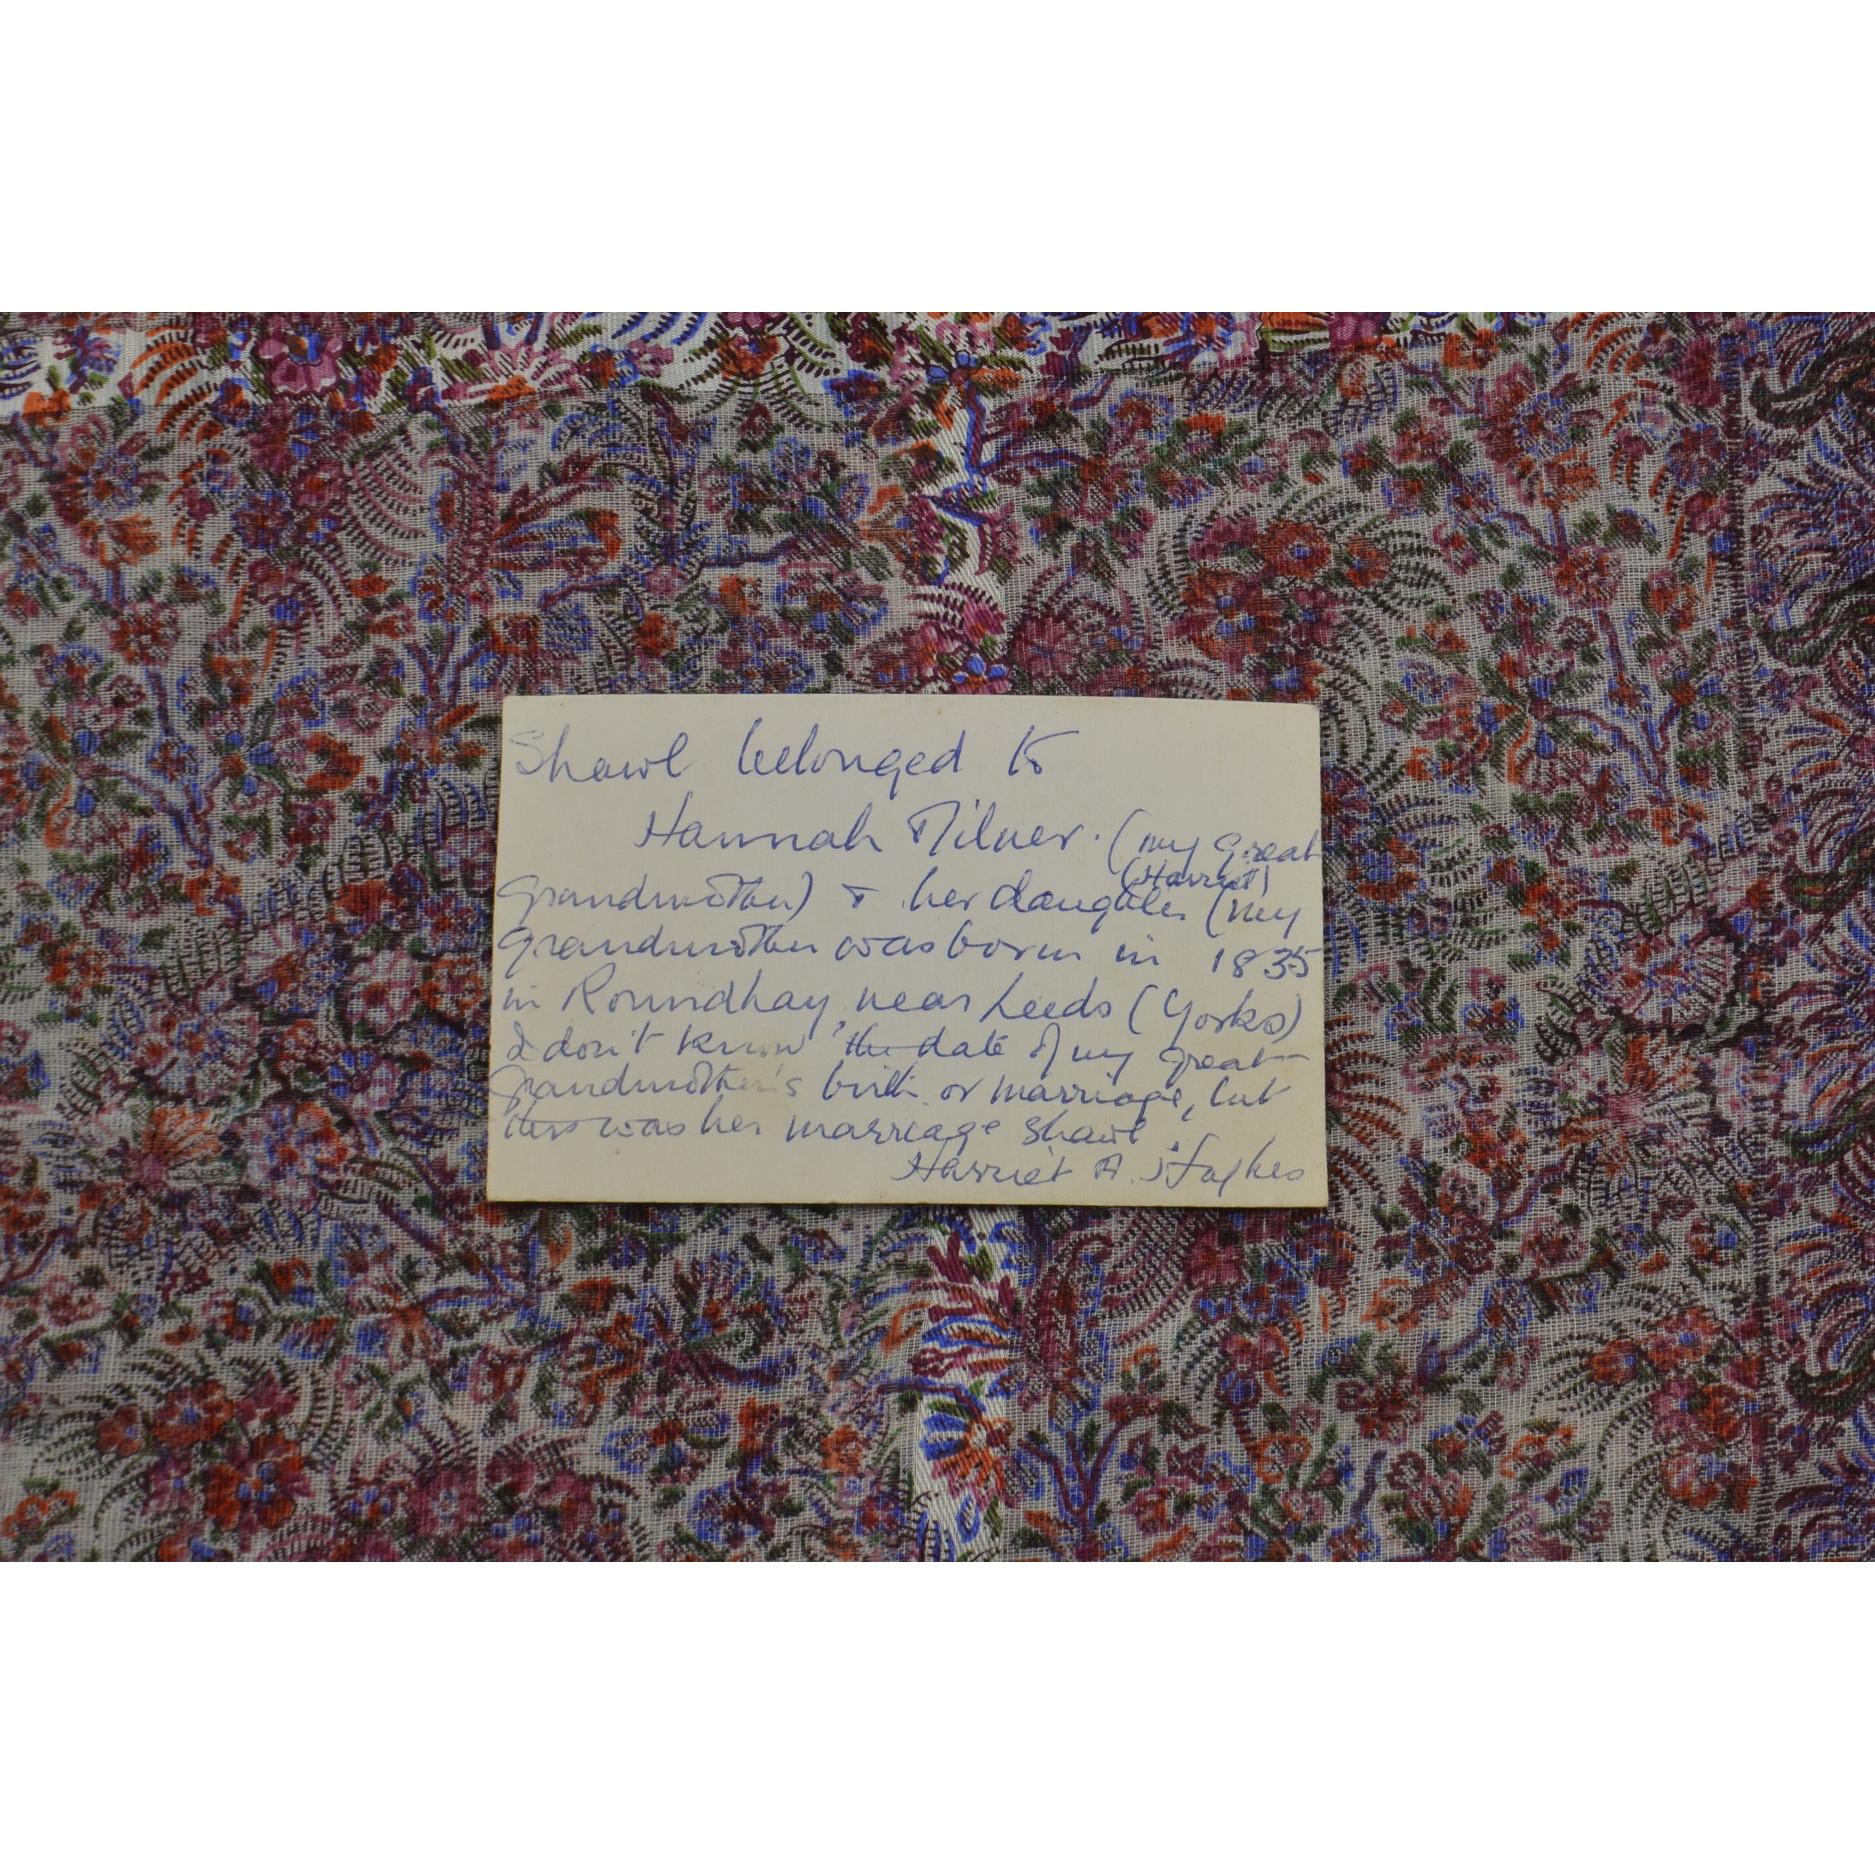 Shawl belonged to
Hannah Milner. (my great
(Harriet)
Grandmother) & her daughter (my
grandmother was born in 1835
in Roundhay near Leeds (Yorks)
I don't know the date of my great
grandmother's birth or marriage, but
this was her marriage shawl.
Harriet A.